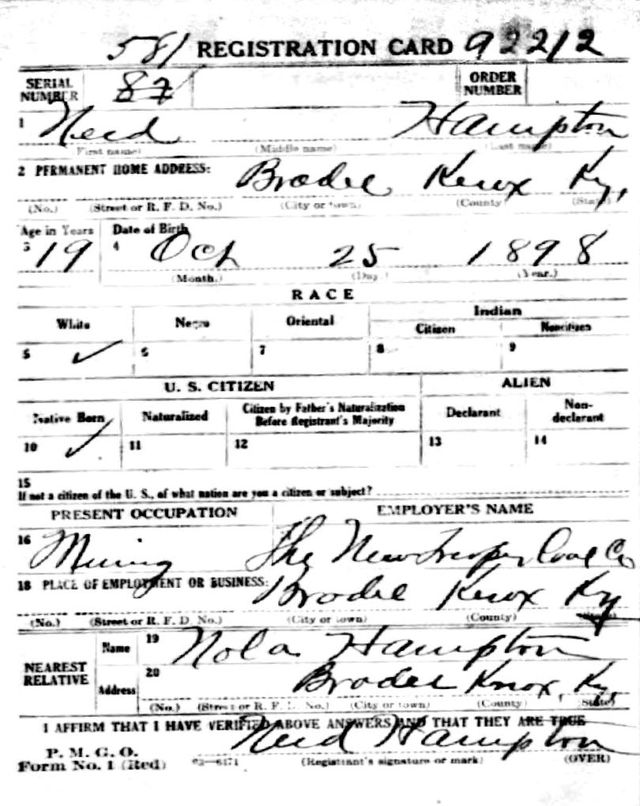 581 REGISTRATION CARD 92212
SERIAL NUMBER 87 ORDER NUMBER
1 Hampton
First name) (Middle name) (Last name)
2 PERMANENT HOME ADDRESS: Knox Ky,
(No.) (Street or R. F. D. No.) (City or town) (County) (State)
Age in Years Date of Birth
3 19 4 Oct 25 1898
(Month.) (Day.) (Year.)
RACE
White Negro Oriental Indian
Citizen Noncitizen
5 ✓ 6 7 8 9
U. S. CITIZEN ALIEN
Native Born Naturalized Citizen by Father's Naturalization Before Registrant's Majority Declarant Non-declarant
10 ✓ 11 12 13 14
15
If not a citizen of the U. S., of what nation are you a citizen or subject?
PRESENT OCCUPATION EMPLOYER'S NAME
16 Mining The Coal Co
18 PLACE OF EMPLOYMENT OR BUSINESS: Knox Ky
(No.) (Street or R. F. D. No.) (City or town) (County) (State)
NEAREST RELATIVE Name 19 Nola Hampton
Address 20 Knox, Ky,
(No.) (Street or R. F. D. No.) (City or town) (County) (State)
I AFFIRM THAT I HAVE VERIFIED ABOVE ANSWERS AND THAT THEY ARE TRUE
P. M. G. O.
Form No. 1 (Red) 03—6171 Hampton
(Registrant's signature or mark) (OVER)